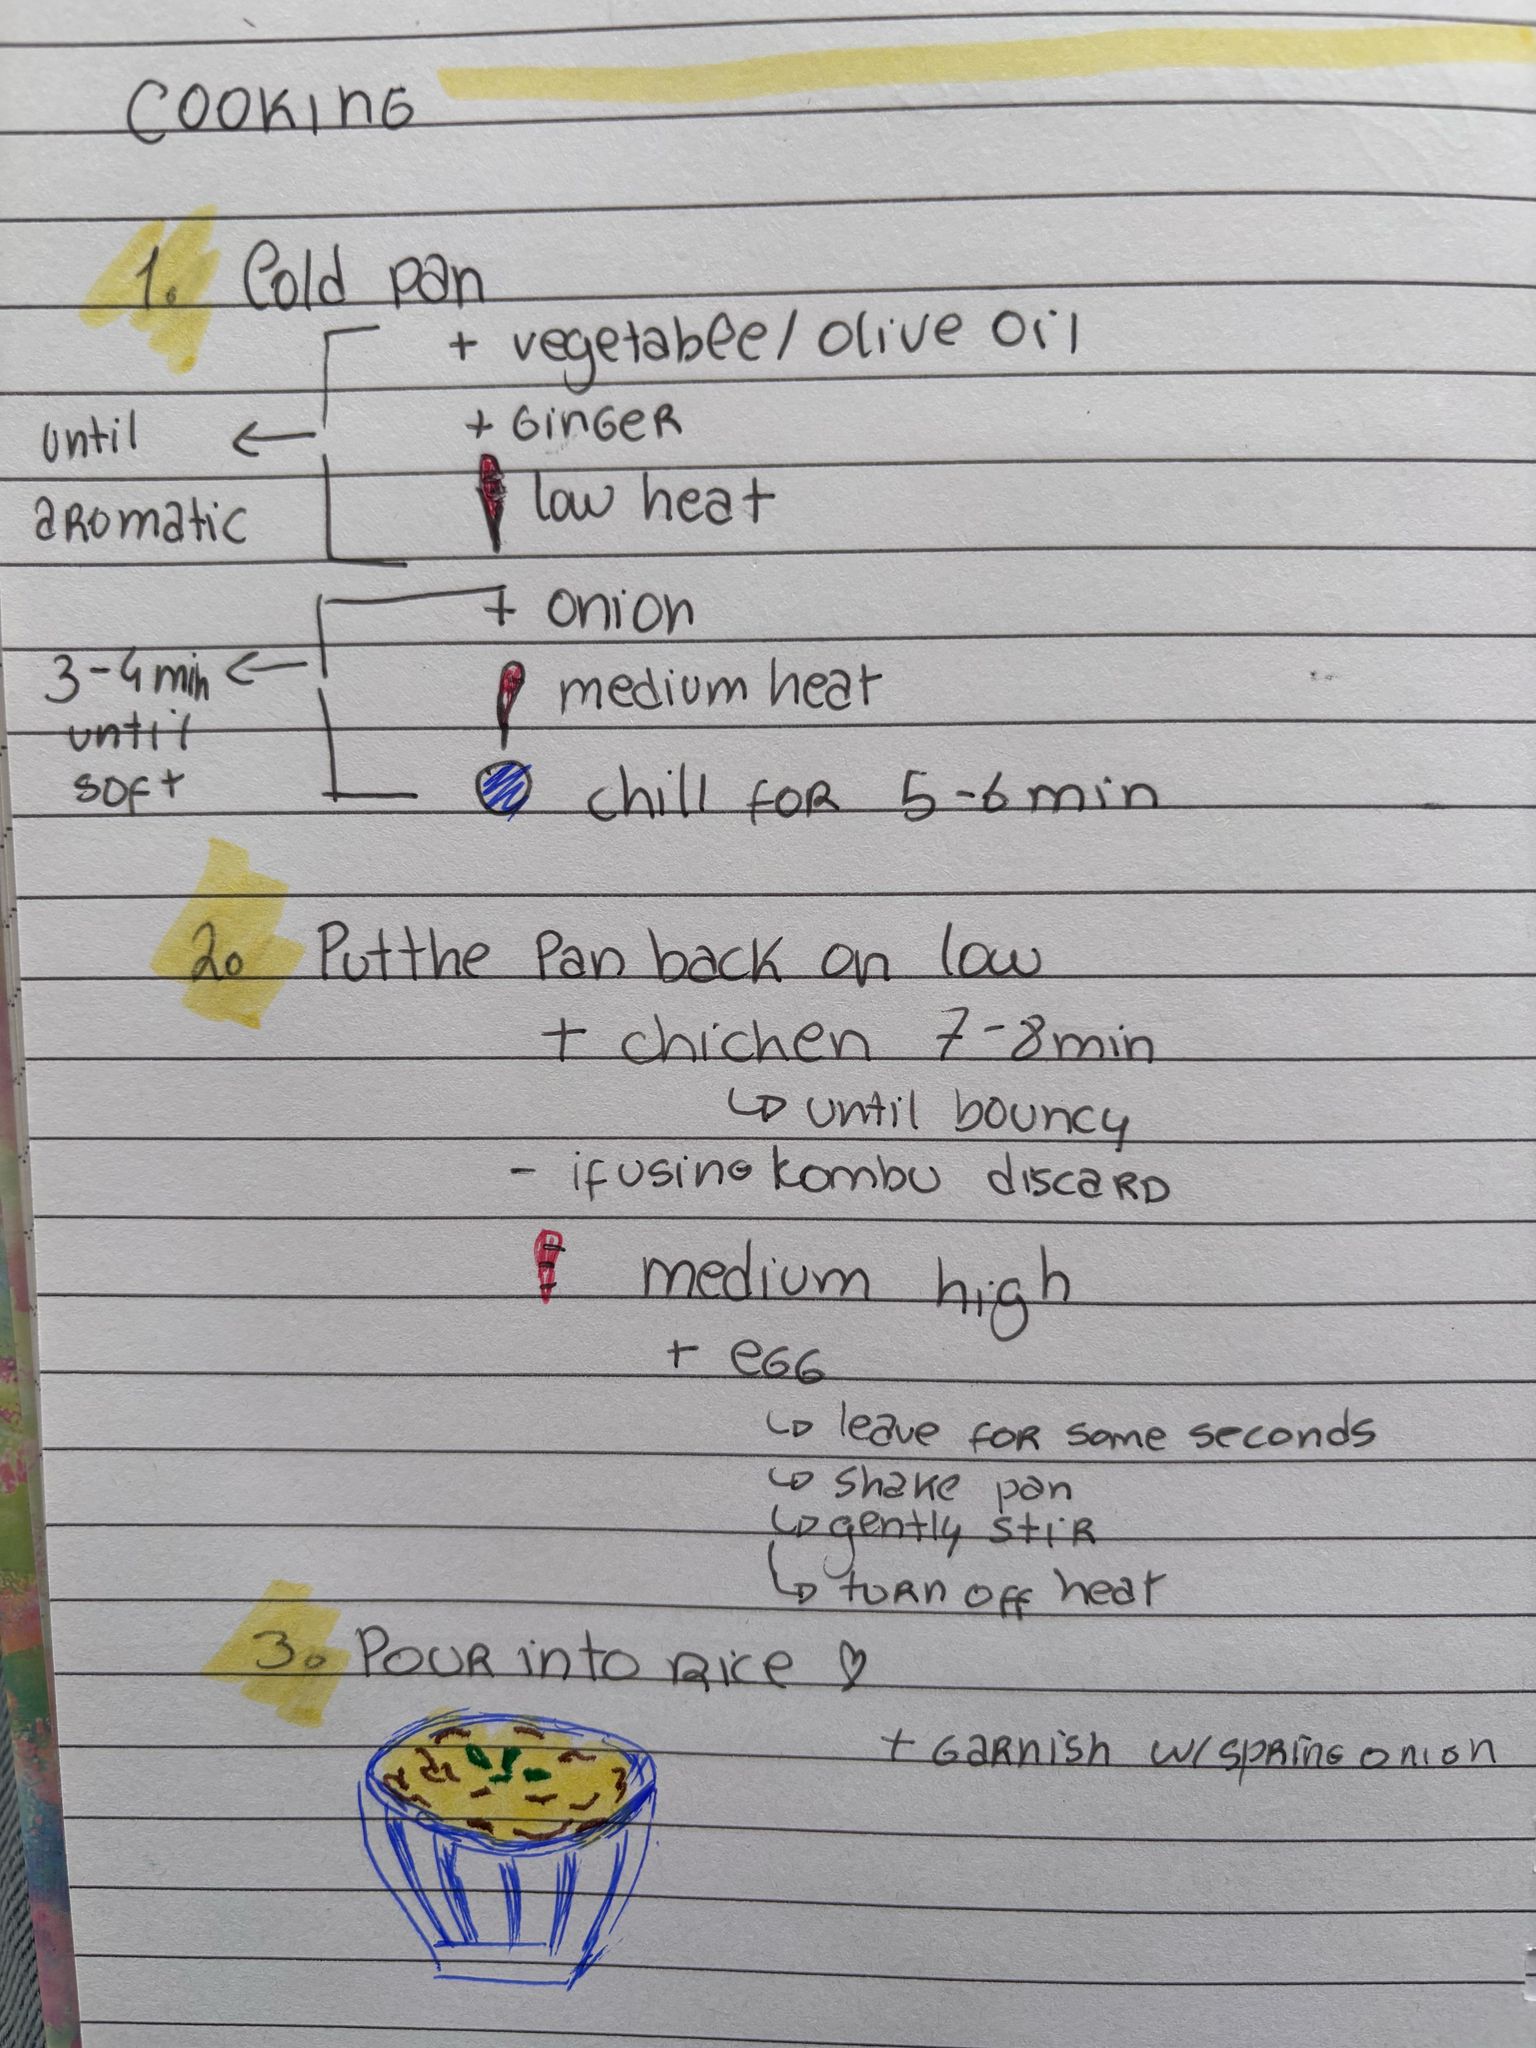 COOKING
1. Cold pan
+ vegetable/ olive oil
+ GINGER
until ←
low heat
aromatic
+ onion
3-4 min ←
medium heat
until
soft
chill for 5-6 min
2. Put the Pan back on low
+ chichen 7-8 min
↳ until bouncy
- if using kombu discard
medium high
+ egg
↳ leave for some seconds
↳ shake pan
↳ gently stir
↳ turn off heat
3. Pour into rice ♡
+ Garnish w/ spring onion